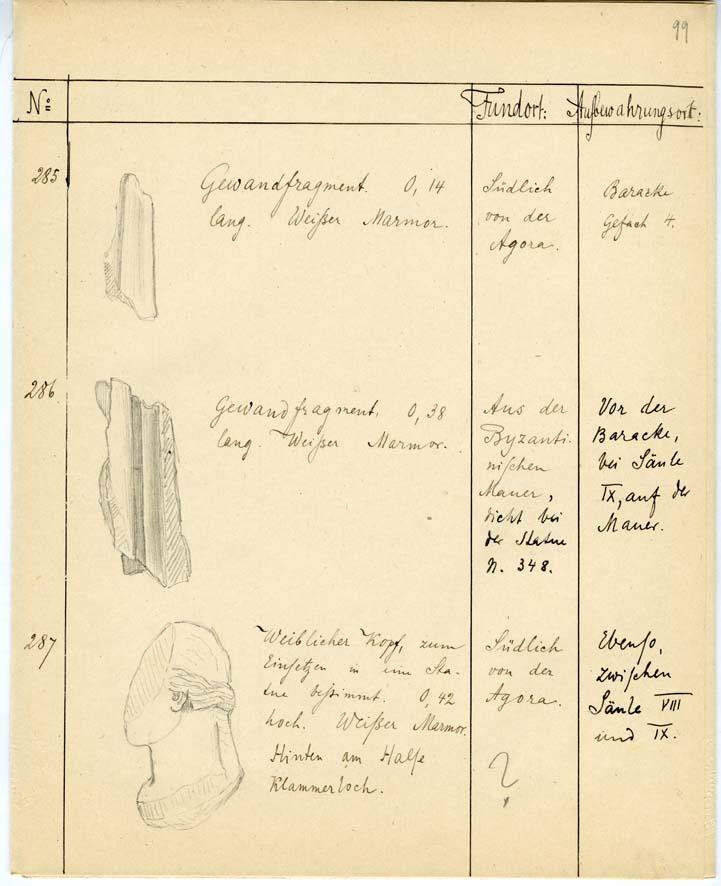 99
No: Fundort: Aufbewahrungsort:
285
Gewandfragment. 0,14
lang. Weißer Marmor.
Südlich
von der
Agora.
Baracke
Gefach 4.
286
Gewandfragment. 0,38
lang. Weißer Marmor.
Aus der
Byzanti-
nischen
Mauer,
dicht bei
der Statue
N. 348.
Vor der
Baracke,
bei Säule
IX, auf der
Mauer.
287
Weiblicher Kopf, zum
Einsetzen in eine Sta-
tue bestimmt. 0,42
hoch. Weißer Marmor.
Hinten am Halse
Klammerloch.
Südlich
von der
Agora.
?
Ebenso,
zwischen
Säule VIII
und IX.